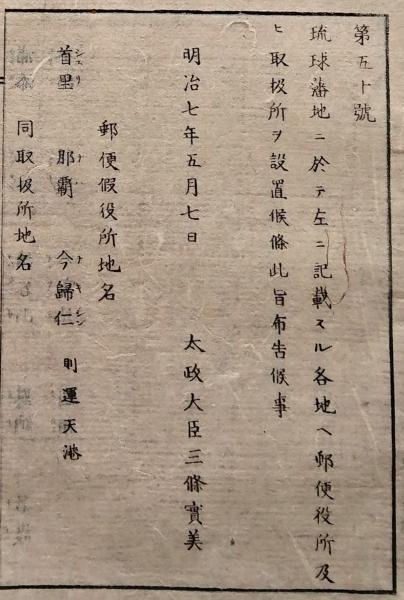 第五十號
琉球藩地ニ於テ左ニ記載スル各地ヘ郵便役所及
ヒ取扱所ヲ設置候條此旨布告候事
明治七年五月七日　太政大臣三條實美
郵便假役所地名
首里　那覇　今歸仁　則運天港
同取扱所地名